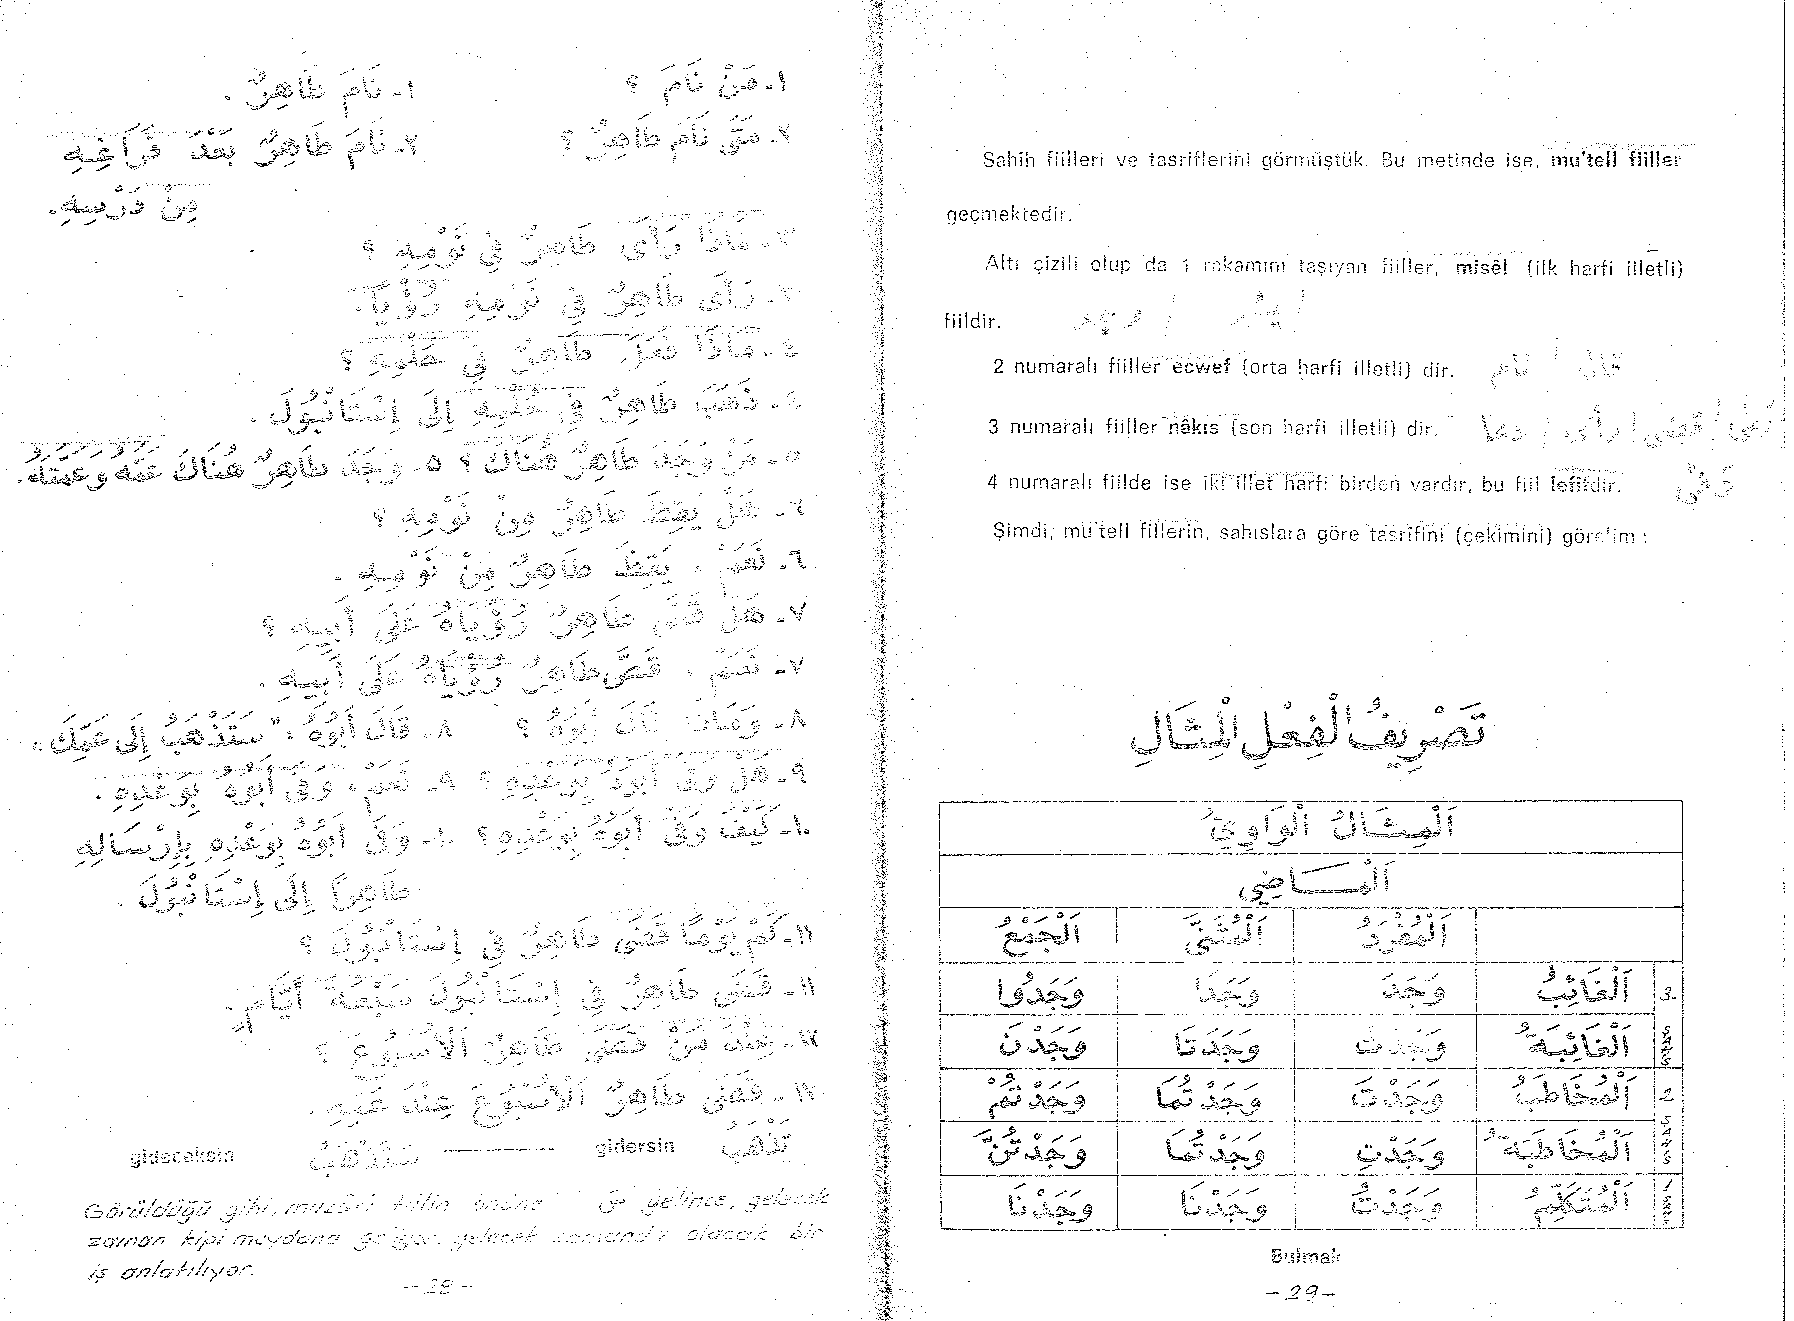 ١- مَنْ نَامَ ؟ ١- نَامَ طَاهِرٌ .
٢- مَتَى نَامَ طَاهِرٌ ؟ ٢- نَامَ طَاهِرٌ بَعْدَ فَرَاغِهِ
مِنْ دَرْسِهِ.
٣- مَاذَا رَأَى طَاهِرٌ فِي نَوْمِهِ ؟
٣- رَأَى طَاهِرٌ فِي نَوْمِهِ رُؤْيَا.
٤- مَاذَا فَعَلَ طَاهِرٌ فِي حُلْمِهِ ؟
٤- ذَهَبَ طَاهِرٌ فِي حُلْمِهِ إِلَى إِسْتَانْبُولَ .
٥- مَنْ وَجَدَ طَاهِرٌ هُنَاكَ ؟ ٥- وَجَدَ طَاهِرٌ هُنَاكَ عَمَّهُ وَعَمَّتَهُ.
٦- هَلْ يَقِظَ طَاهِرٌ مِنْ نَوْمِهِ ؟
٦- نَعَمْ ، يَقِظَ طَاهِرٌ مِنْ نَوْمِهِ .
٧- هَلْ قَصَّ طَاهِرٌ رُؤْيَاهُ عَلَى أَبِيهِ ؟
٧- نَعَمْ ، قَصَّ طَاهِرٌ رُؤْيَاهُ عَلَى أَبِيهِ .
٨- وَمَاذَا قَالَ أَبُوهُ ؟ ٨- قَالَ أَبُوهُ ، "سَتَذْهَبُ إِلَى عَمِّكَ.
٩- هَلْ وَفَى أَبُوهُ بِوَعْدِهِ ؟ ٩- نَعَمْ ، وَفَى أَبُوهُ بِوَعْدِهِ .
١٠- كَيْفَ وَفَى أَبُوهُ بِوَعْدِهِ ؟ ١٠- وَفَى أَبُوهُ بِوَعْدِهِ بِإِرْسَالِهِ
طَاهِرًا إِلَى إِسْتَانْبُولَ .
١١- كَمْ يَوْمًا قَضَى طَاهِرٌ فِي إِسْتَانْبُولَ ؟
١١- قَضَى طَاهِرٌ فِي إِسْتَانْبُولَ سَبْعَةَ أَيَّامٍ.
١٢- عِنْدَ مَنْ قَضَى طَاهِرٌ اَلْأُسْبُوعَ ؟
١٢- قَضَى طَاهِرٌ اَلْأُسْبُوعَ عِنْدَ عَمِّهِ .
gideceksin سَتَذْهَبُ ———— gidersin تَذْهَبُ
Görüldüğü gibi, muzâri fiilin önüne س gelince, gelecek
zaman kipi meydana geliyor, gelecek zamanda olacak bir
iş anlatılıyor.
—28—
Sahih fiilleri ve tasriflerini görmüştük. Bu metinde ise, mu'tell fiiller
geçmektedir.
Altı çizili olup da 1 rakamını taşıyan fiiller, misêl (ilk harfi illetli)
fiildir. وجد /
2 numaralı fiiller ecwef (orta harfi illetli) dir. نام / قال
3 numaralı fiiller nâkıs (son harfi illetli) dir. دعا / رأى / قضى /
4 numaralı fiilde ise iki illet harfi birden vardır, bu fiil lefiftir. وَفَى
Şimdi, mu'tell fiillerin, şahıslara göre tasrifini (çekimini) görelim :
تَصْرِيفُ الْفِعْلِ الْمِثَالِ
اَلْمِثَالُ الْوَاوِيُّ
اَلْمَاضِي
اَلْمُفْرَدُ اَلْمُثَنَّى اَلْجَمْعُ
3. اَلْغَائِبُ وَجَدَ وَجَدَا وَجَدُوا
اَلْغَائِبَةُ وَجَدَتْ وَجَدَتَا وَجَدْنَ
2 اَلْمُخَاطَبُ وَجَدْتَ وَجَدْتُمَا وَجَدْتُمْ
اَلْمُخَاطَبَةُ وَجَدْتِ وَجَدْتُمَا وَجَدْتُنَّ
اَلْمُتَكَلِّمُ وَجَدْتُ وَجَدْنَا وَجَدْنَا
Bulmak
—29—